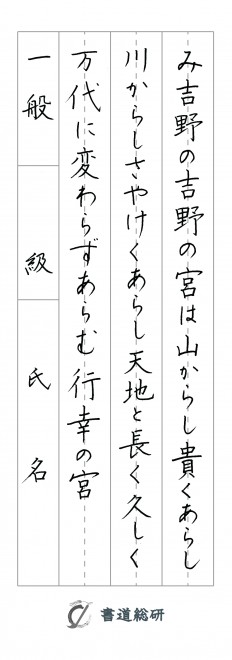 み吉野の吉野の宮は山からし貴くあらし
川からしさやけくあらし天地と長く久しく
万代に変わらずあらむ行幸の宮
一般　級　氏名
書道総研